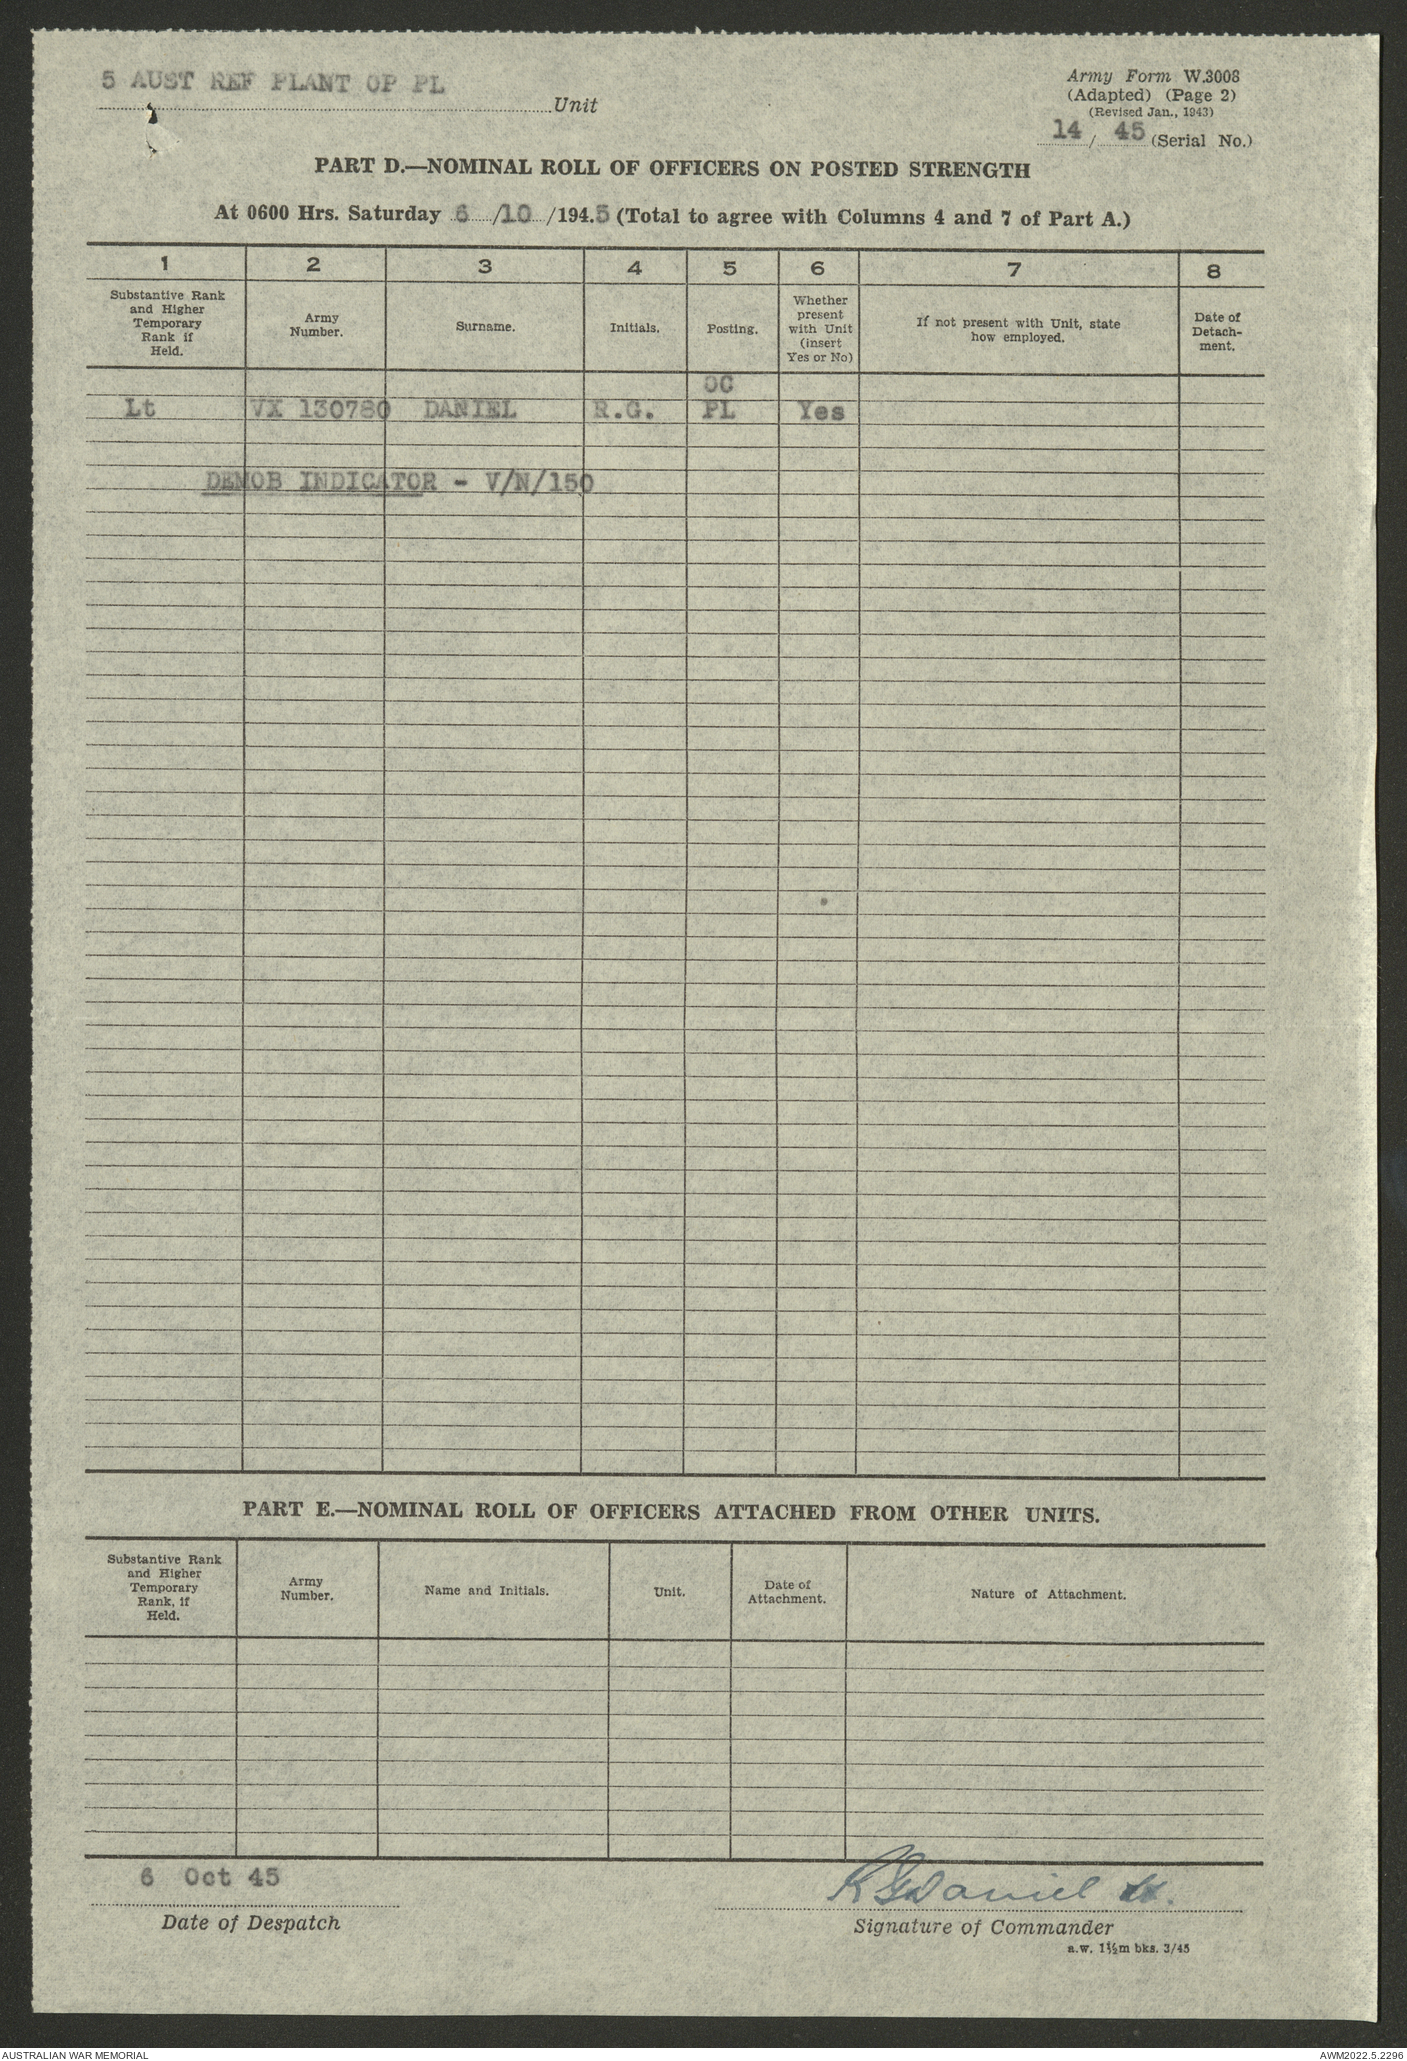 5 AUST REF PLANT OP PL
Unit
Army Form W.3008
(Adapted) (Page 2)
(Revised Jan., 1943)
14 / 45 (Serial No.)
PART D.—NOMINAL ROLL OF OFFICERS ON POSTED STRENGTH
At 0600 Hrs. Saturday 6 /10 /194.5 (Total to agree with Columns 4 and 7 of Part A.)
1 2 3 4 5 6 7 8
Substantive Rank
and Higher
Temporary
Rank if
Held.
Army
Number.
Surname.
Initials.
Posting.
Whether
present
with Unit
(insert
Yes or No)
If not present with Unit, state
how employed.
Date of
Detach-
ment.
OC
Lt VX 130780 DANIEL R.G. PL Yes
DEMOB INDICATOR - V/N/150
PART E.—NOMINAL ROLL OF OFFICERS ATTACHED FROM OTHER UNITS.
Substantive Rank
and Higher
Temporary
Rank, if
Held.
Army
Number.
Name and Initials.
Unit.
Date of
Attachment.
Nature of Attachment.
6 Oct 45
Date of Despatch
RGDaniel Lt.
Signature of Commander
a.w. 1½m bks. 3/45
AUSTRALIAN WAR MEMORIAL
AWM2022.5.2296